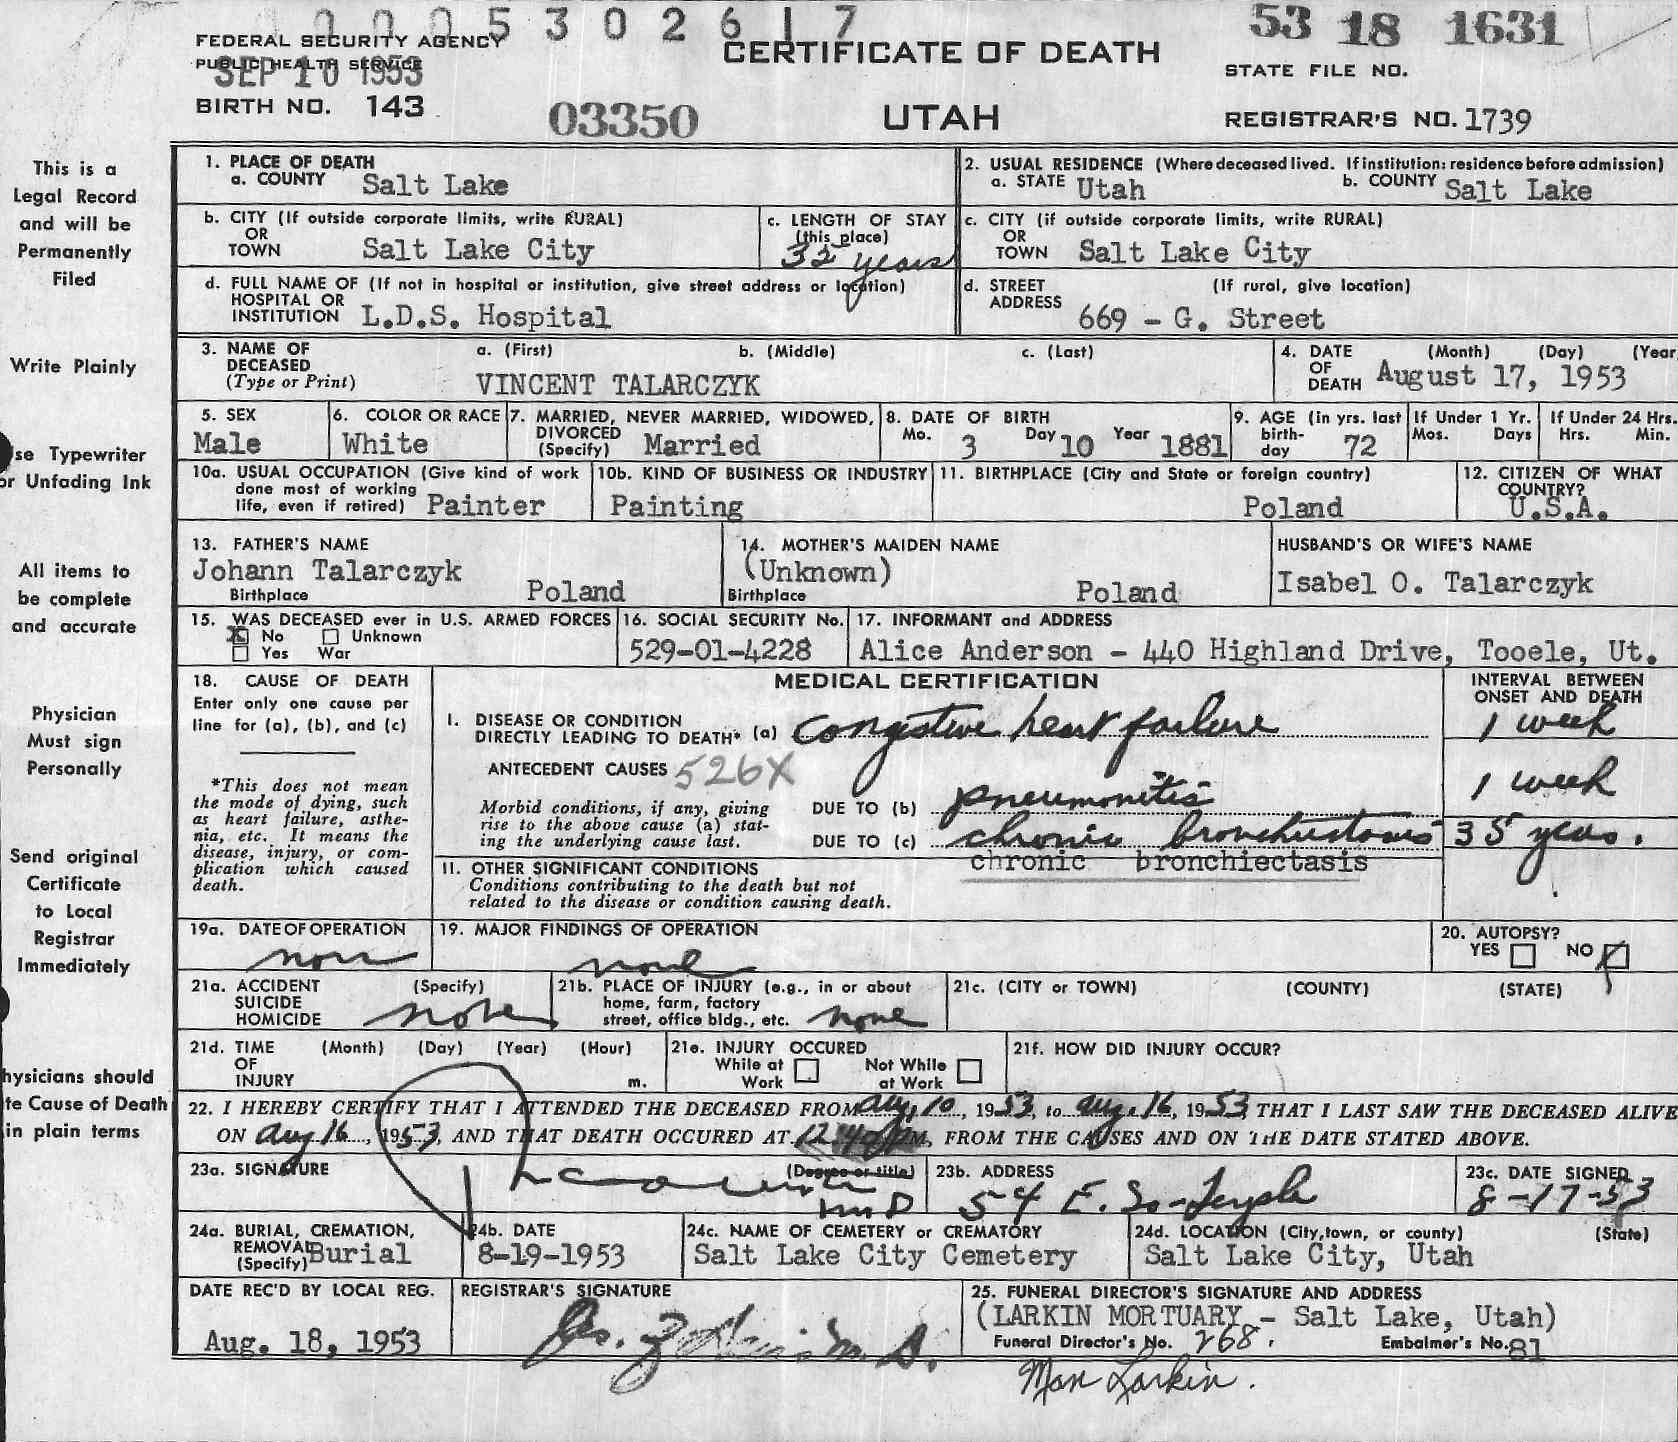 0005302617
53 18 1631
FEDERAL SECURITY AGENCY
PUBLIC HEALTH SERVICE
SEP 10 1953
CERTIFICATE OF DEATH
STATE FILE NO.
BIRTH NO. 143
03350
UTAH
REGISTRAR'S NO. 1739
This is a
Legal Record
and will be
Permanently
Filed
Write Plainly
se Typewriter
or Unfading Ink
All items to
be complete
and accurate
Physician
Must sign
Personally
Send original
Certificate
to Local
Registrar
Immediately
hysicians should
te Cause of Death
in plain terms
1. PLACE OF DEATH
a. COUNTY Salt Lake
2. USUAL RESIDENCE (Where deceased lived. If institution: residence before admission)
a. STATE Utah b. COUNTY Salt Lake
b. CITY (If outside corporate limits, write RURAL)
OR
TOWN Salt Lake City
c. LENGTH OF STAY
(this place)
32 years
c. CITY (if outside corporate limits, write RURAL)
OR
TOWN Salt Lake City
d. FULL NAME OF (If not in hospital or institution, give street address or location)
HOSPITAL OR
INSTITUTION L.D.S. Hospital
d. STREET (If rural, give location)
ADDRESS
669 - G. Street
3. NAME OF a. (First) b. (Middle) c. (Last)
DECEASED
(Type or Print) VINCENT TALARCZYK
4. DATE (Month) (Day) (Year
OF
DEATH August 17, 1953
5. SEX
Male
6. COLOR OR RACE
White
7. MARRIED, NEVER MARRIED, WIDOWED,
DIVORCED
(Specify) Married
8. DATE OF BIRTH
Mo. 3 Day 10 Year 1881
9. AGE (in yrs. last
birth-
day 72
If Under 1 Yr.
Mos. Days
If Under 24 Hrs.
Hrs. Min.
10a. USUAL OCCUPATION (Give kind of work
done most of working
life, even if retired) Painter
10b. KIND OF BUSINESS OR INDUSTRY
Painting
11. BIRTHPLACE (City and State or foreign country)
Poland
12. CITIZEN OF WHAT
COUNTRY?
U.S.A.
13. FATHER'S NAME
Johann Talarczyk
Birthplace Poland
14. MOTHER'S MAIDEN NAME
(Unknown)
Birthplace Poland
HUSBAND'S OR WIFE'S NAME
Isabel O. Talarczyk
15. WAS DECEASED ever in U.S. ARMED FORCES
X No Unknown
Yes War
16. SOCIAL SECURITY No.
529-01-4228
17. INFORMANT and ADDRESS
Alice Anderson - 440 Highland Drive, Tooele, Ut.
18. CAUSE OF DEATH
Enter only one cause per
line for (a), (b), and (c)
*This does not mean
the mode of dying, such
as heart failure, asthe-
nia, etc. It means the
disease, injury, or com-
plication which caused
death.
MEDICAL CERTIFICATION
INTERVAL BETWEEN
ONSET AND DEATH
I. DISEASE OR CONDITION
DIRECTLY LEADING TO DEATH* (a) congestive heart failure 1 week
ANTECEDENT CAUSES 526X
Morbid conditions, if any, giving
rise to the above cause (a) stat-
ing the underlying cause last.
DUE TO (b) pneumonitis 1 week
DUE TO (c) chronic bronchiectasis 35 years.
chronic bronchiectasis
11. OTHER SIGNIFICANT CONDITIONS
Conditions contributing to the death but not
related to the disease or condition causing death.
19a. DATE OF OPERATION
none
19. MAJOR FINDINGS OF OPERATION
none
20. AUTOPSY?
YES NO
21a. ACCIDENT (Specify)
SUICIDE
HOMICIDE none
21b. PLACE OF INJURY (e.g., in or about
home, farm, factory
street, office bldg., etc. none
21c. (CITY or TOWN) (COUNTY) (STATE)
21d. TIME (Month) (Day) (Year) (Hour)
OF
INJURY m.
21e. INJURY OCCURED
While at Work Not While at Work
21f. HOW DID INJURY OCCUR?
22. I HEREBY CERTIFY THAT I ATTENDED THE DECEASED FROM Aug. 10, 1953, to Aug. 16, 1953, THAT I LAST SAW THE DECEASED ALIVE
ON Aug 16, 1953, AND THAT DEATH OCCURED AT 12:40 M, FROM THE CAUSES AND ON THE DATE STATED ABOVE.
23a. SIGNATURE (Degree or title)
M D
23b. ADDRESS
54 E. So-Temple
23c. DATE SIGNED
8-17-53
24a. BURIAL, CREMATION,
REMOVAL
(Specify) Burial
24b. DATE
8-19-1953
24c. NAME OF CEMETERY or CREMATORY
Salt Lake City Cemetery
24d. LOCATION (City, town, or county) (State)
Salt Lake City, Utah
DATE REC'D BY LOCAL REG.
Aug. 18, 1953
REGISTRAR'S SIGNATURE
M. D.
25. FUNERAL DIRECTOR'S SIGNATURE AND ADDRESS
(LARKIN MORTUARY - Salt Lake, Utah)
Funeral Director's No. 268. Embalmer's No. 81
Larkin.